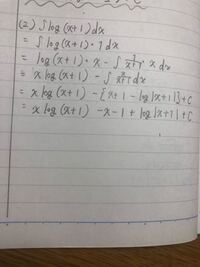 (2) ∫log(x+1)dx
= ∫log(x+1)・1dx
= log(x+1)・x - ∫ 1/(x+1)・x dx
= x log(x+1) - ∫ x/(x+1) dx
= x log(x+1) - {x+1 - log|x+1|}+C
= x log(x+1) -x-1 + log|x+1|+C